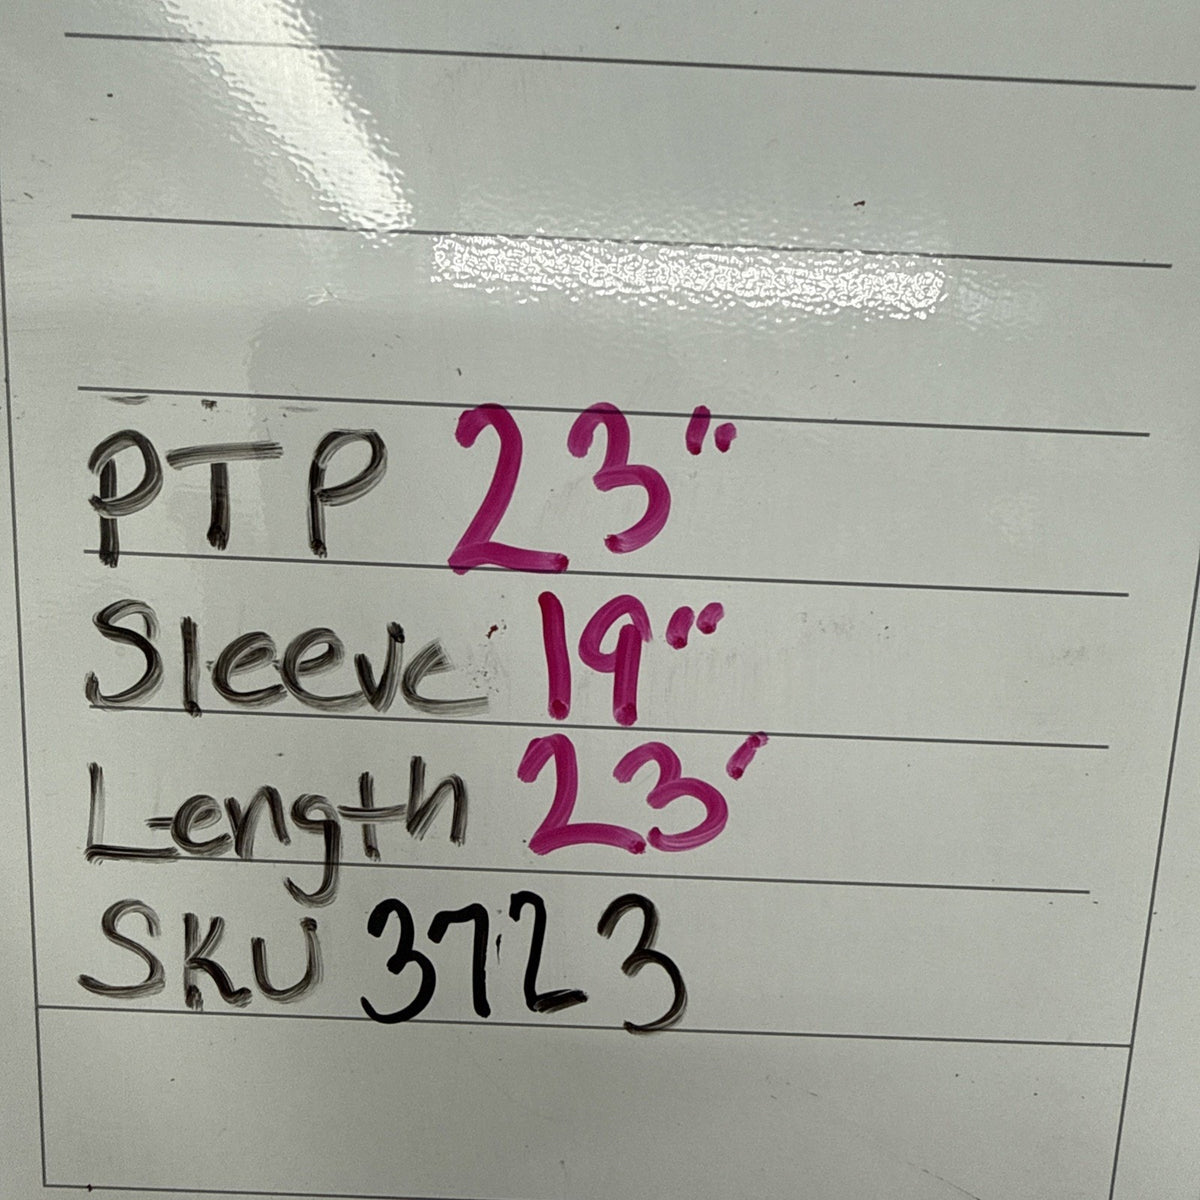 PTP 23"
Sleeve 19"
Length 23'
SKU 3723